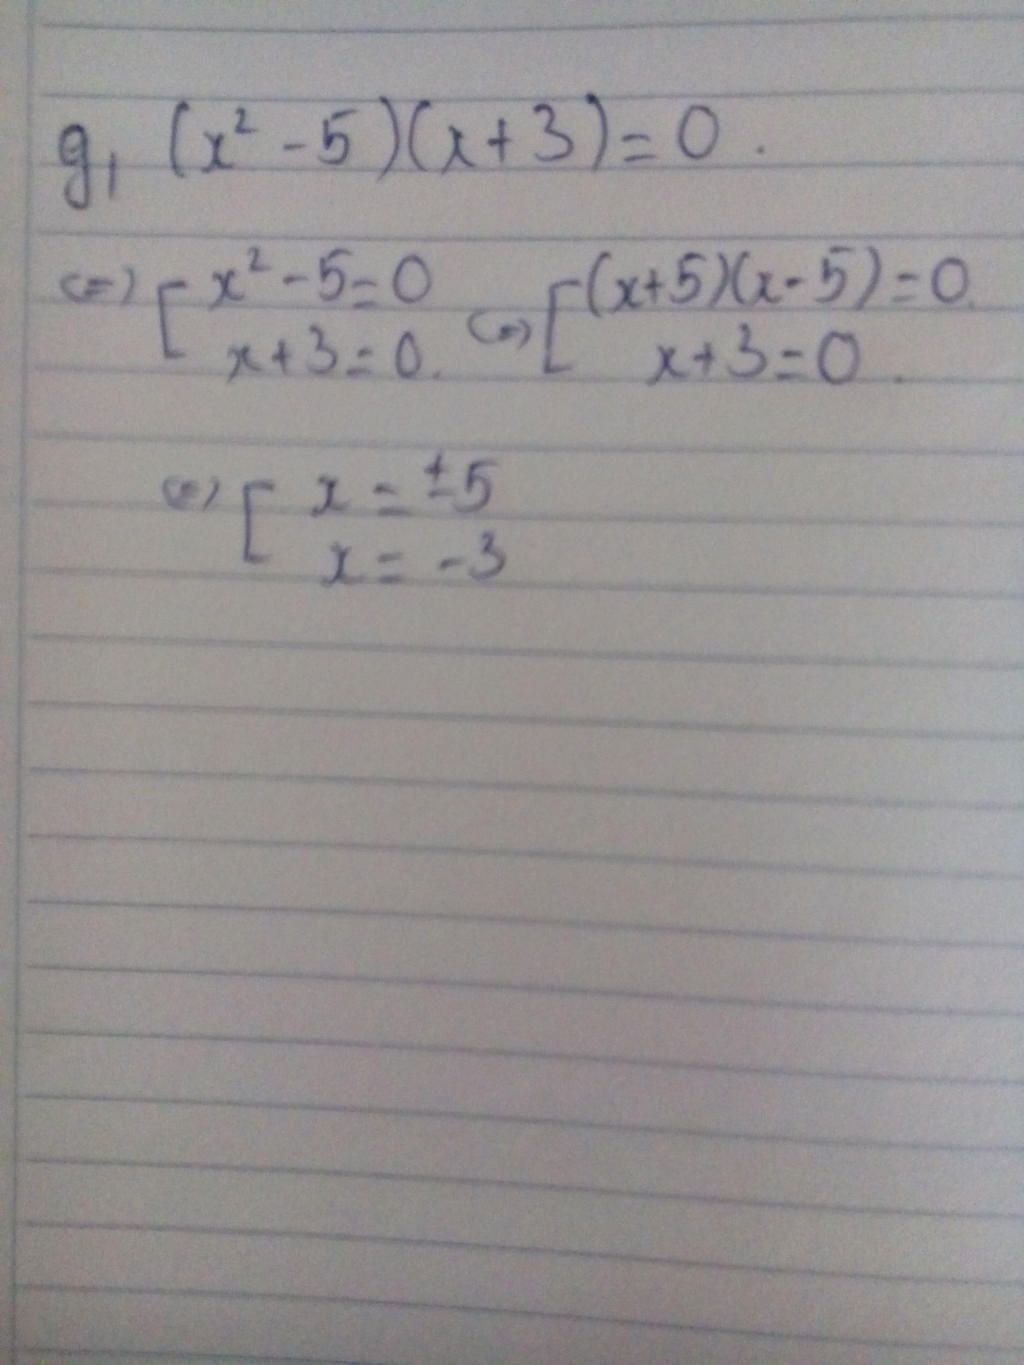 g, (x² - 5)(x + 3) = 0.
<=> [ x² - 5 = 0 <=> [ (x + 5)(x - 5) = 0.
x + 3 = 0. x + 3 = 0.
<=> [ x = ±5
x = -3